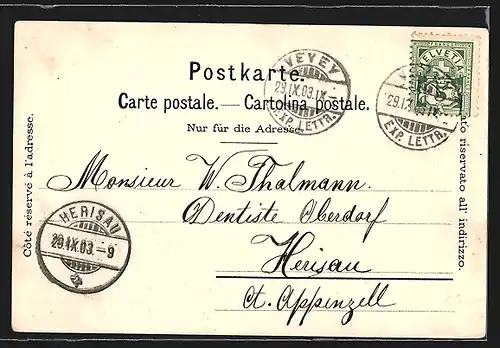 Postkarte.
Carte postale. — Cartolina postale.
Nur für die Adresse.
Côté réservé à l'adresse.
riservato all' indirizzo.
VEVEY
29.IX.03.IX
EXP. LETTR.
VEVEY
29.IX.03.IX
EXP. LETTR.
HELVETIA
Monsieur W. Thalmann.
Dentiste Oberdorf
Herisau
Ct. Appenzell
HERISAU
29.IX.03.-9